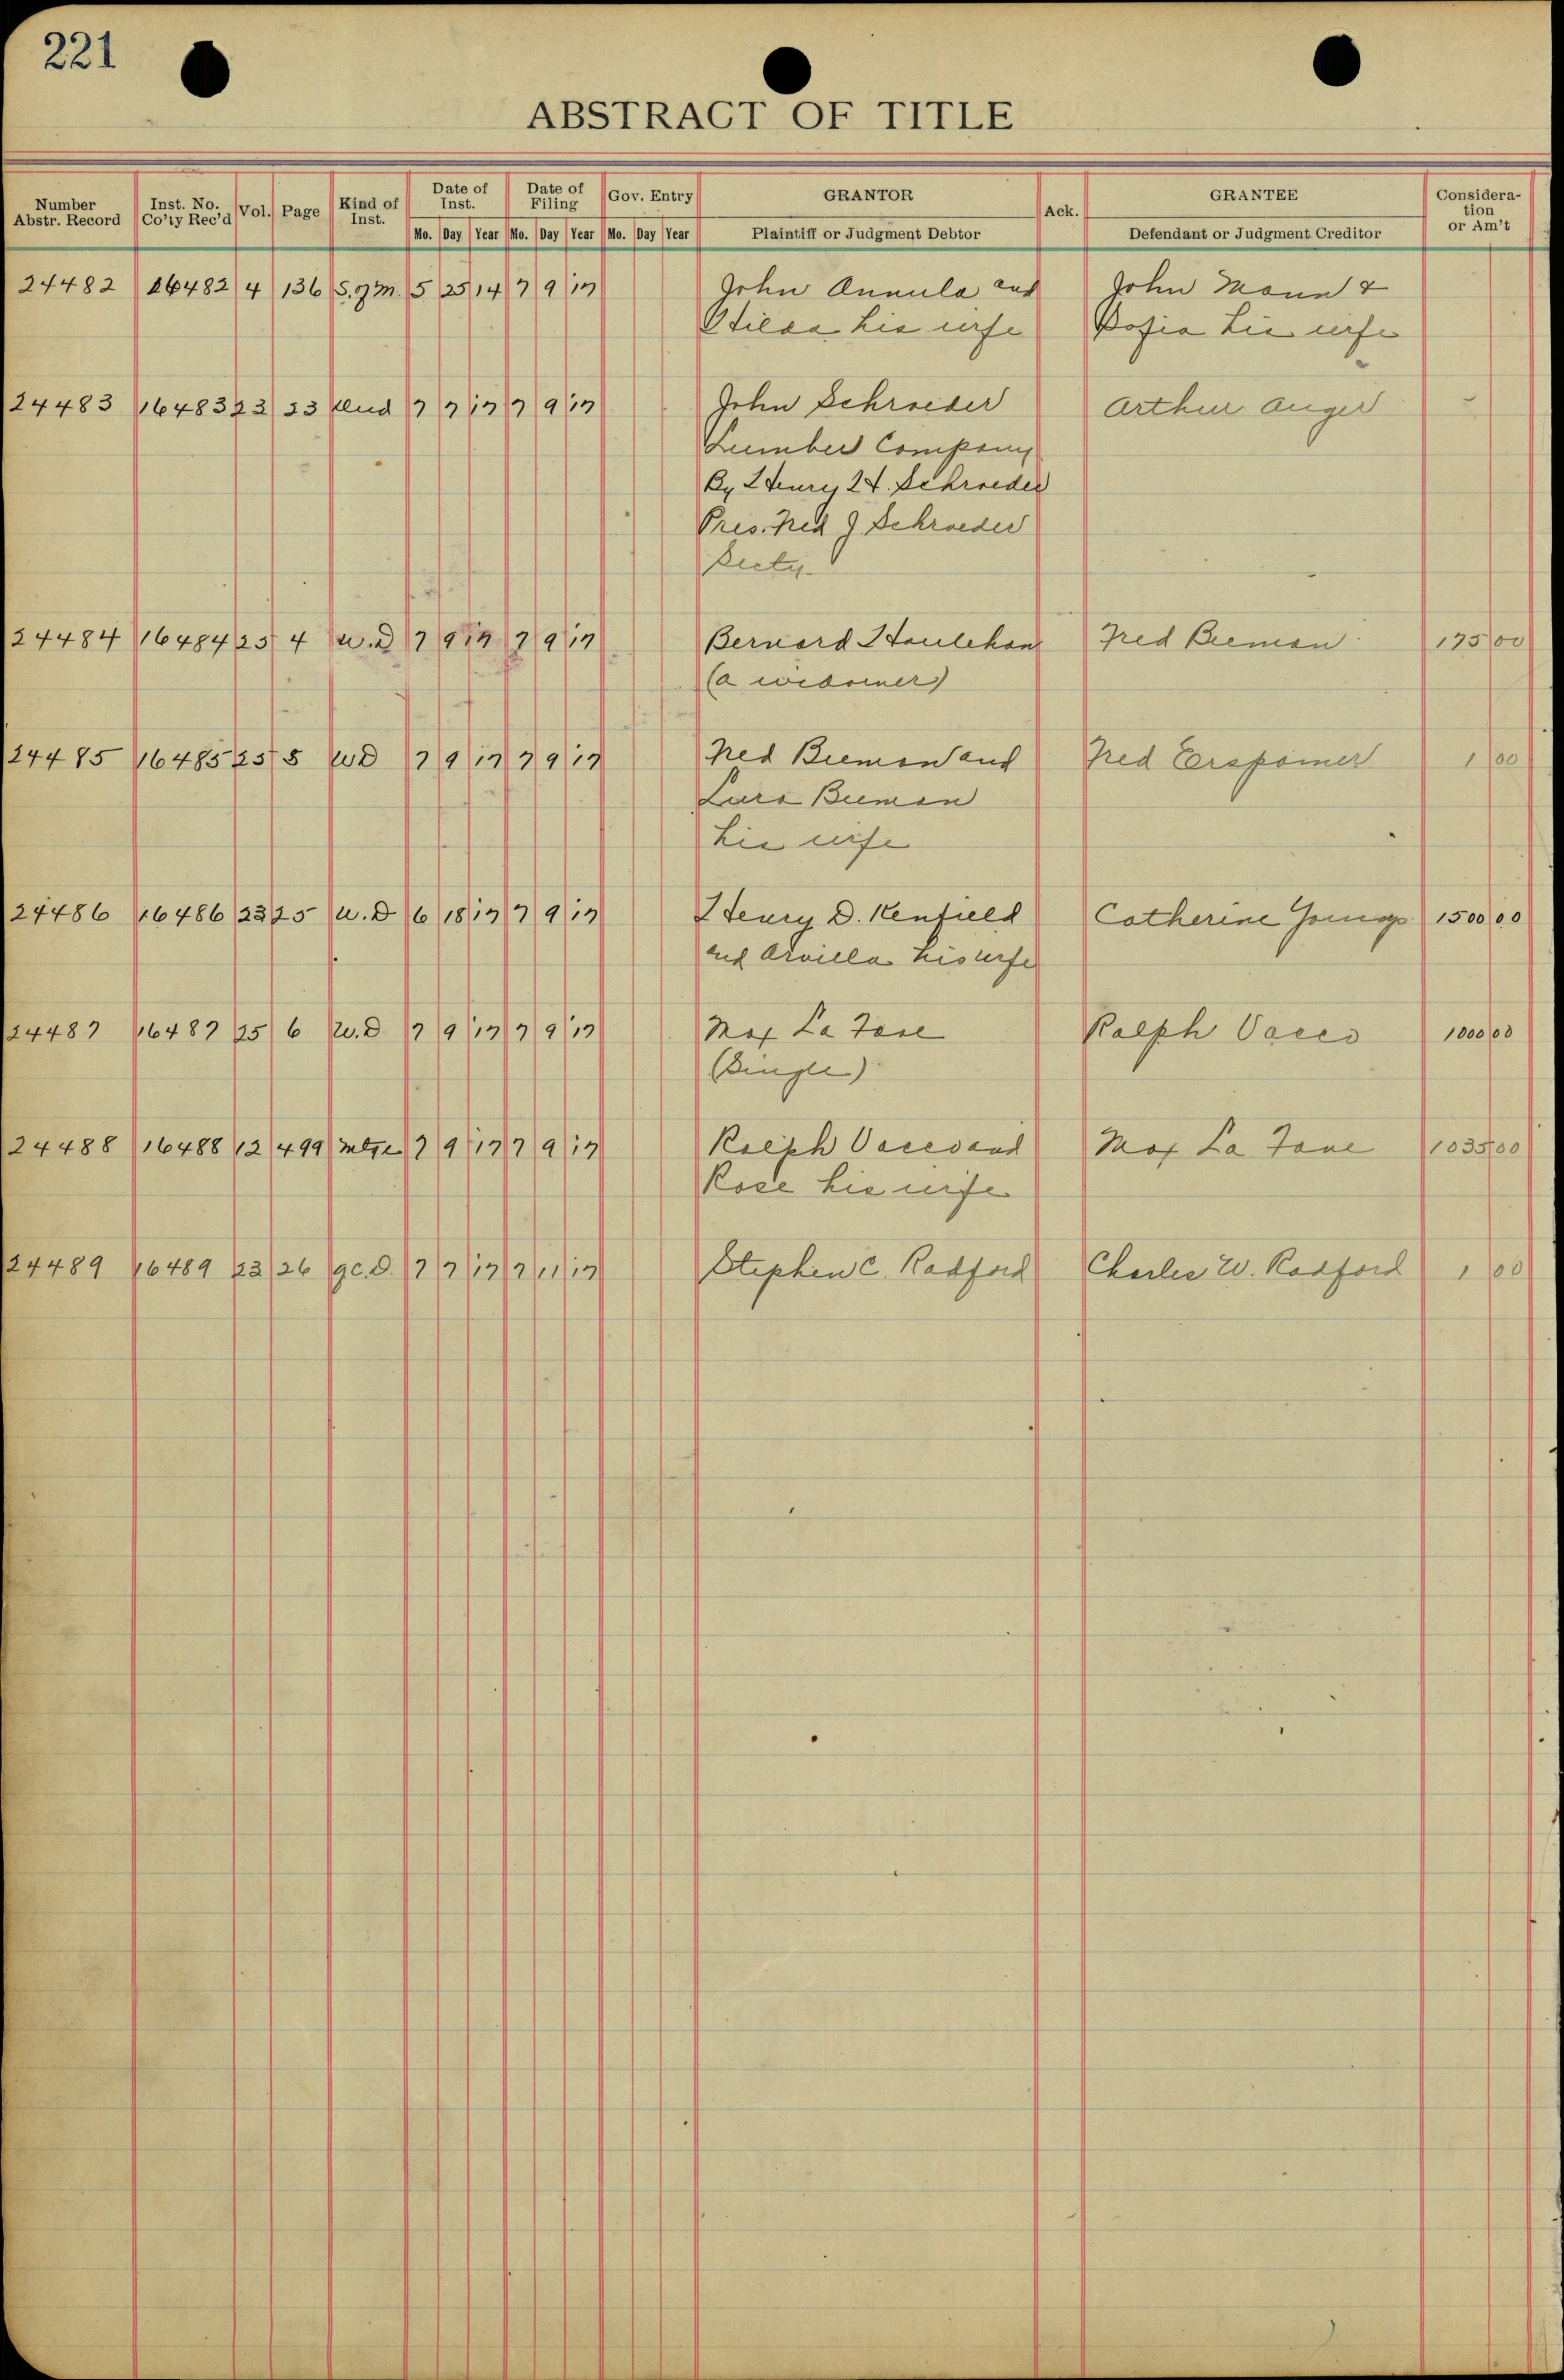 221
ABSTRACT OF TITLE
Number Abstr. Record Inst. No. Co'ty Rec'd Vol. Page Kind of Inst. Date of Inst. Date of Filing Gov. Entry GRANTOR Ack. GRANTEE Considera-tion or Am't
Mo. Day Year Mo. Day Year Mo. Day Year Plaintiff or Judgment Debtor Defendant or Judgment Creditor
24482 16482 4 136 5 25 14 7 9 17 John Annula and John Mann &
his wife Sofia his wife
24483 16483 23 23 7 7 17 7 9 17 John Schroeder Arthur Auger
Lumber Company
By Henry H. Schroeder
Pres. Fred J Schroeder
Secty.
24484 16484 25 4 W.D 7 9 17 7 9 17 Bernard Houlehan Fred Beeman 175 00
(a widower)
24485 16485 25 5 WD 7 9 17 7 9 17 Fred Beeman and Fred 1 00
Beeman
his wife
24486 16486 23 25 W.D 6 18 17 7 9 17 Henry D. Kenfield Catherine Youngs 1500 00
and Arvilla his wife
24487 16487 25 6 W.D. 7 9 17 7 9 17 Max La Fave Ralph Vacco 1000 00
(Single)
24488 16488 12 499 Mtge 7 9 17 7 9 17 Ralph Vacco and Max La Fave 1035 00
Rose his wife
24489 16489 23 26 Q.C.D. 7 7 17 7 11 17 Stephen C. Radford Charles W. Radford 1 00